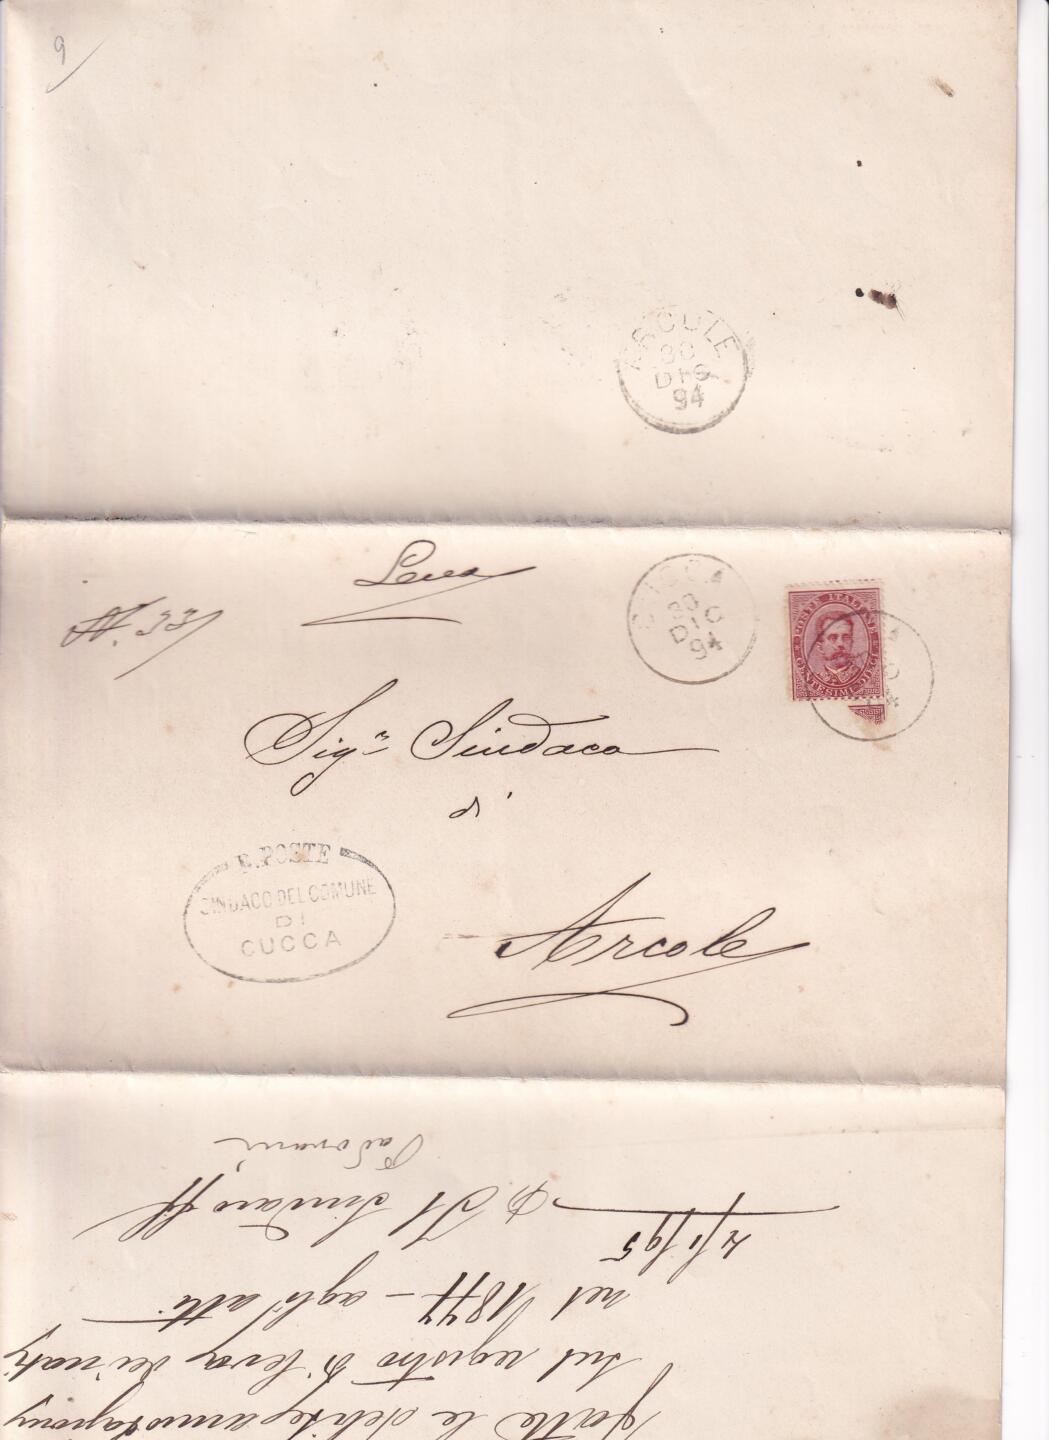 9
ARCOLE
30
DIC
94
Leva
N. 33
CUCCA
30
DIC
94
POSTE ITALIANE
CENTESIMI DIECI
Sigr Sindaco
di
Arcole
R. POSTE
SINDACO DEL COMUNE
DI
CUCCA
fatte le debite annotazioni
sul registro di leva dei nati
nel 1877 - agli atti
4/1/95
p. Il Sindaco ff